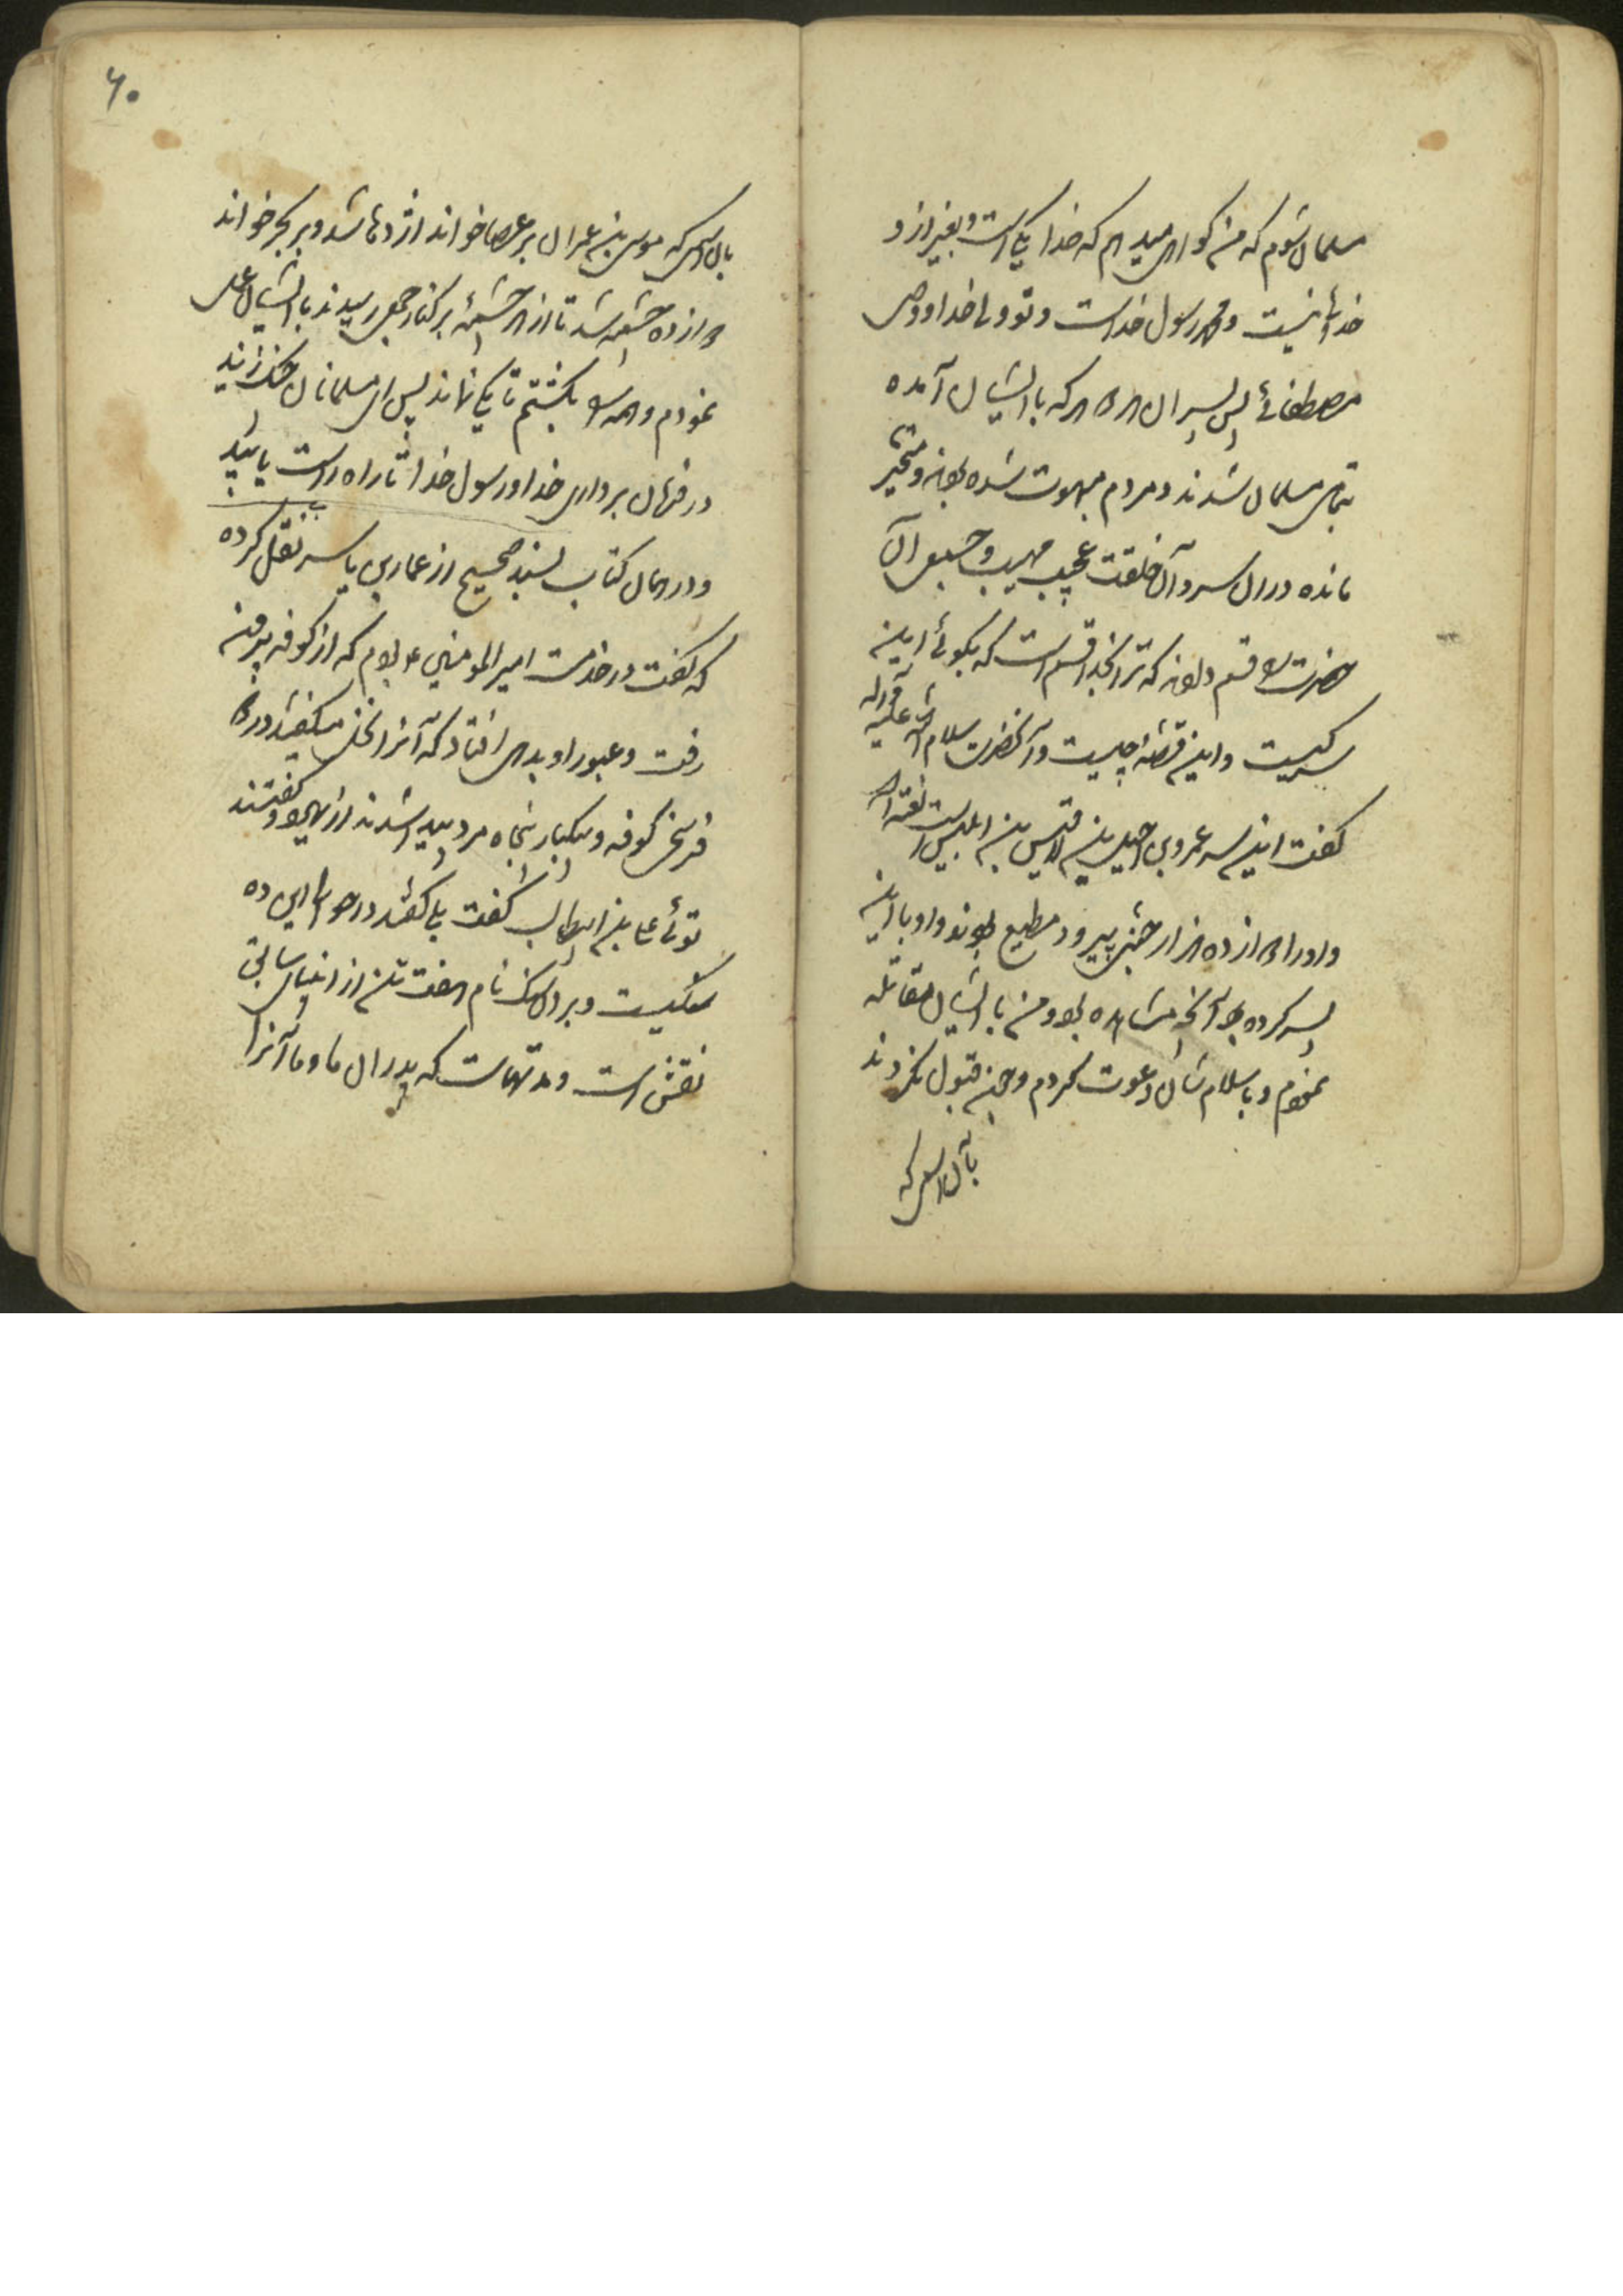 مسلمان شوم که من گواهی میدهم که خدا یکی است و بغیر از او
خدائی نیست و محمد رسول خداست و تو ولی خدا و وصی
مصطفائی پس پسران او و هر که با ایشان آمده
بتمامی مسلمان شدند و مردم مبهوت شده بودند و متحیر
مانده در آن سر و آن خلقت عجیب مهیب و جمعی آن
حضرت را قسم دادند که ترا بخدا قسم است که بگوئی این
سر کیست و این قصه چیست و آنحضرت سلام الله علیه و آله
گفت این سر عمرو بن بن لاقیس بن ابلیس است لعنه الله
و او را دوازده هزار جنی پیرو و مطیع بودند و او با این
پسر کرده بود آنچه مشاهده بود و من با ایشان مقاتله
نمودم و باسلام شان دعوت کردم و چون قبول نکردند
بآن اسمی که
۶۰
بآن اسمی که موسی بن عمران بر عصا خواند اژدها شد و بر بحر خواند
دوازده چشمه شد تا از هر چشمه بر کنار جمعی رسیدند با ایشان
نمودم و همه را بکشتم تا یکی نماند پس ای مسلمانان چنک زنید
در فرمان برداری خدا و رسول خدا تا راه راست یابید
و در همان کتاب بسند صحیح از عمار بن یاسر نقل کرده
که گفت در خدمت امیر المومنین ع بودم که از کوفه بیرون
رفت و عبور او بدهی افتاد که آنرا نخله میگفتند در دو
فرسخی کوفه و یکبار پنجاه مرد پیدا شدند از یهود و گفتند
توئی علی بن ابیطالب گفت بلی گفتند در حوالی این ده
سنگیست و بر آن سنک نام هفت تن از انبیای سابق
نقش است و مدتهاست که پدران ما و ما آنرا